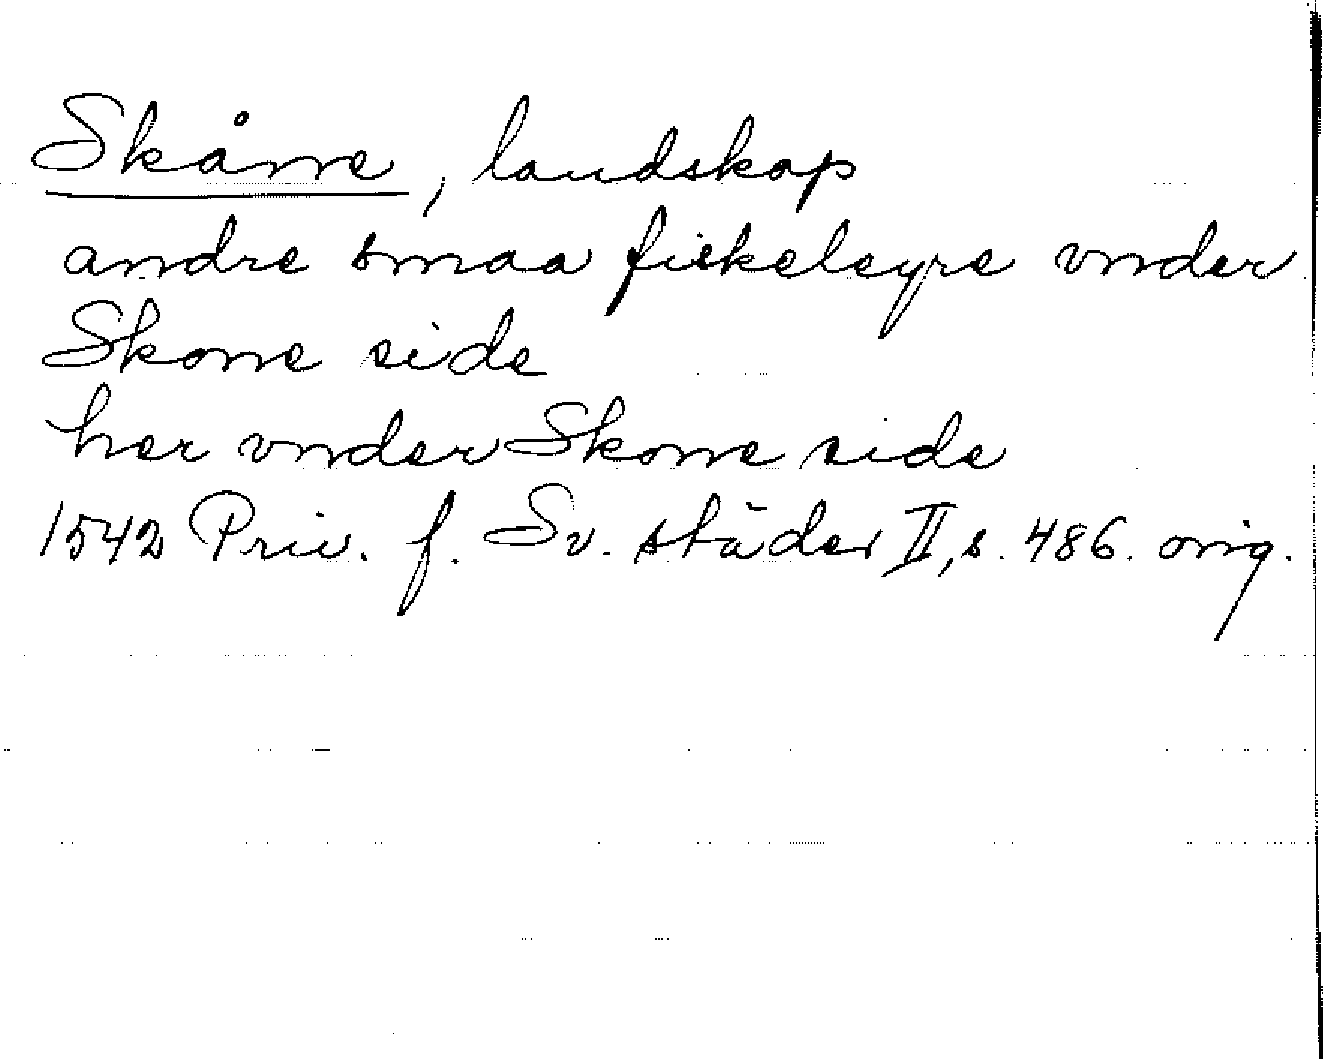 Skåne, landskap
andre smaa fiskeleyre vnder
Skone side
her vnder Skone side
1542 Priv. f. Sv. städer II, s. 486. orig.